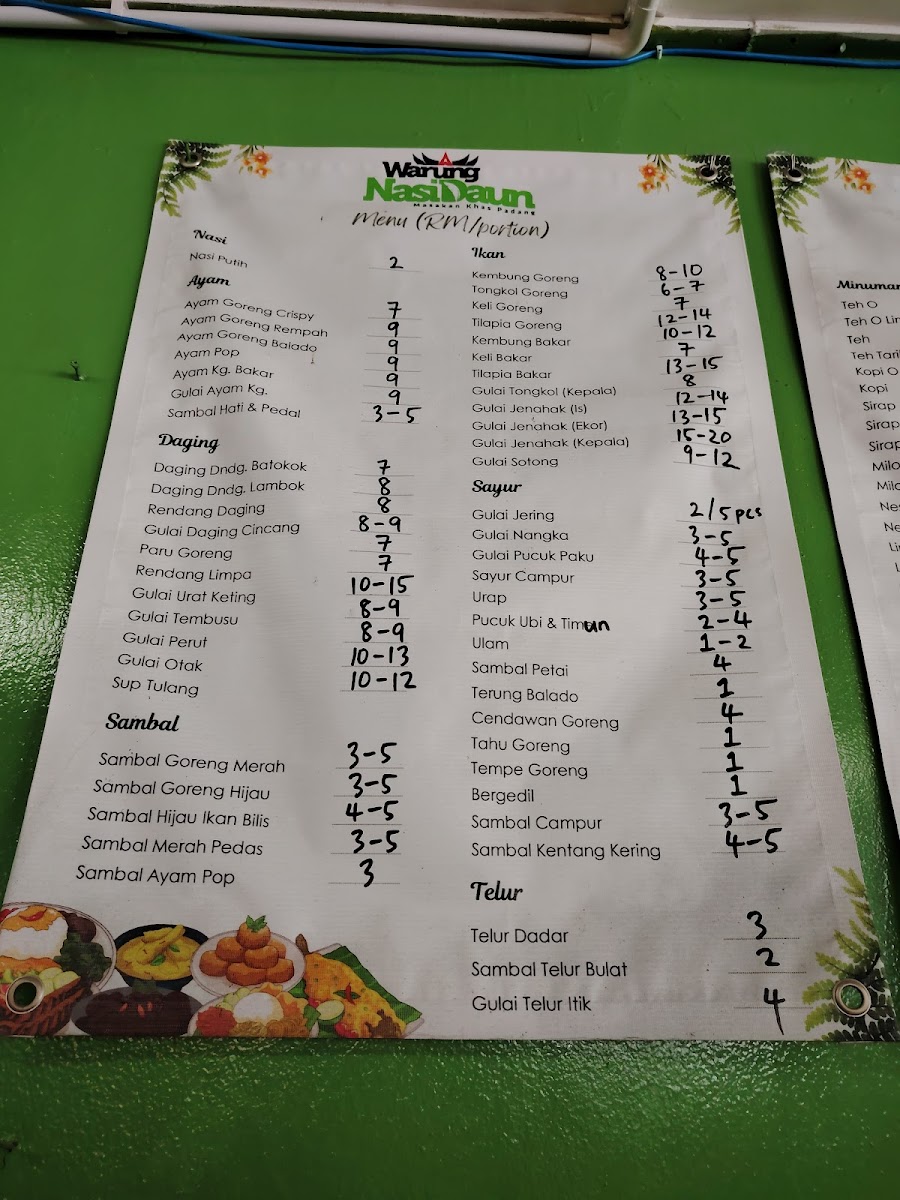 Warung
NasiDaun
Masakan Khas Padang
Menu (RM/portion)
Nasi
Nasi Putih 2
Ayam
Ayam Goreng Crispy 7
Ayam Goreng Rempah 9
Ayam Goreng Balado 9
Ayam Pop 9
Ayam Kg. Bakar 9
Gulai Ayam Kg. 9
Sambal Hati & Pedal 3-5
Daging
Daging Dndg. Batokok 7
Daging Dndg. Lambok 8
Rendang Daging 8
Gulai Daging Cincang 8-9
Paru Goreng 7
Rendang Limpa 7
Gulai Urat Keting 10-15
Gulai Tembusu 8-9
Gulai Perut 8-9
Gulai Otak 10-13
Sup Tulang 10-12
Sambal
Sambal Goreng Merah 3-5
Sambal Goreng Hijau 3-5
Sambal Hijau Ikan Bilis 4-5
Sambal Merah Pedas 3-5
Sambal Ayam Pop 3
Ikan
Kembung Goreng 8-10
Tongkol Goreng 6-7
Keli Goreng 7
Tilapia Goreng 12-14
Kembung Bakar 10-12
Keli Bakar 7
Tilapia Bakar 13-15
Gulai Tongkol (Kepala) 8
Gulai Jenahak (Is) 12-14
Gulai Jenahak (Ekor) 13-15
Gulai Jenahak (Kepala) 15-20
Gulai Sotong 9-12
Sayur
Gulai Jering 2/5pcs
Gulai Nangka 3-5
Gulai Pucuk Paku 4-5
Sayur Campur 3-5
Urap 3-5
Pucuk Ubi & Timun 2-4
Ulam 1-2
Sambal Petai 4
Terung Balado 1
Cendawan Goreng 4
Tahu Goreng 1
Tempe Goreng 1
Bergedil 1
Sambal Campur 3-5
Sambal Kentang Kering 4-5
Telur
Telur Dadar 3
Sambal Telur Bulat 2
Gulai Telur Itik 4
Minuman
Teh O
Teh O
Teh
Teh
Kopi O
Kopi
Sirap
Sirap
Sirap
Milo